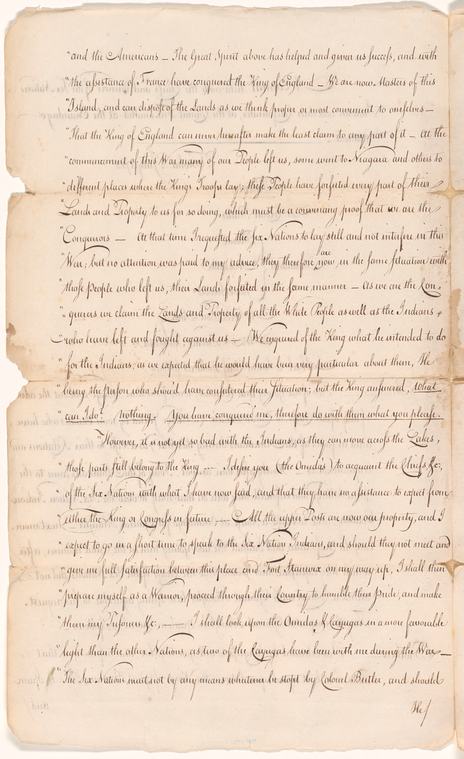 "and the Americans — The Great Spirit above has helped and given us success, and with
"the assistance of France have conquered the King of England — We are now Masters of this
"Island, and can dispose of the Lands as we think proper or most convenient to ourselves —
"That the King of England can never hereafter make the least claim to any part of it — At the
"commencement of this War many of our People left us, some went to Niagara and others to
"different places where the King's Troops lay; these People have forfeited every part of their
"Lands and Property to us for so doing, which must be a convincing proof that we are the
"Conquerors — At that time I requested the Six Nations to lay still and not interfere in this
"War, but no attention was paid to my advice, they therefore are now in the same situation with
"those People who left us, their Lands forfeited in the same manner — As we are the Con-
"querors we claim the Lands and Property of all the White People as well as the Indians
"who have left and fought against us — We enquired of the King what he intended to do
"for the Indians, as we expected that he would have been very particular about them, He
"being the person who should have considered their situation; but the King answered, What
can I do? nothing. You have conquered me, therefore do with them what you please.
"However, it is not yet so bad with the Indians, as they can move across the Lakes,
"those parts still belong to the King — I desire you (the Oneida's) to acquaint the Chiefs &c.
"of the Six Nations with what I have now said, and that they have no assistance to expect from
"either the King or Congress in future — All the upper Posts are now our property, and I
"expect to go in a short time to speak to the Six Nation Indians, and should they not meet and
"give me full satisfaction between this place and Fort Stanwix on my way up, I shall then
"prepare myself as a Warrior, proceed through their Country to humble their pride, and make
"them my Prisoners &c. — I shall look upon the Oneidas & Cayugas in a more favorable
"light than the other Nations, as two of the Cayugas have been with me during the War —
"The Six Nations must not by any means whatever be stopt by Colonel Butler, and should
He/